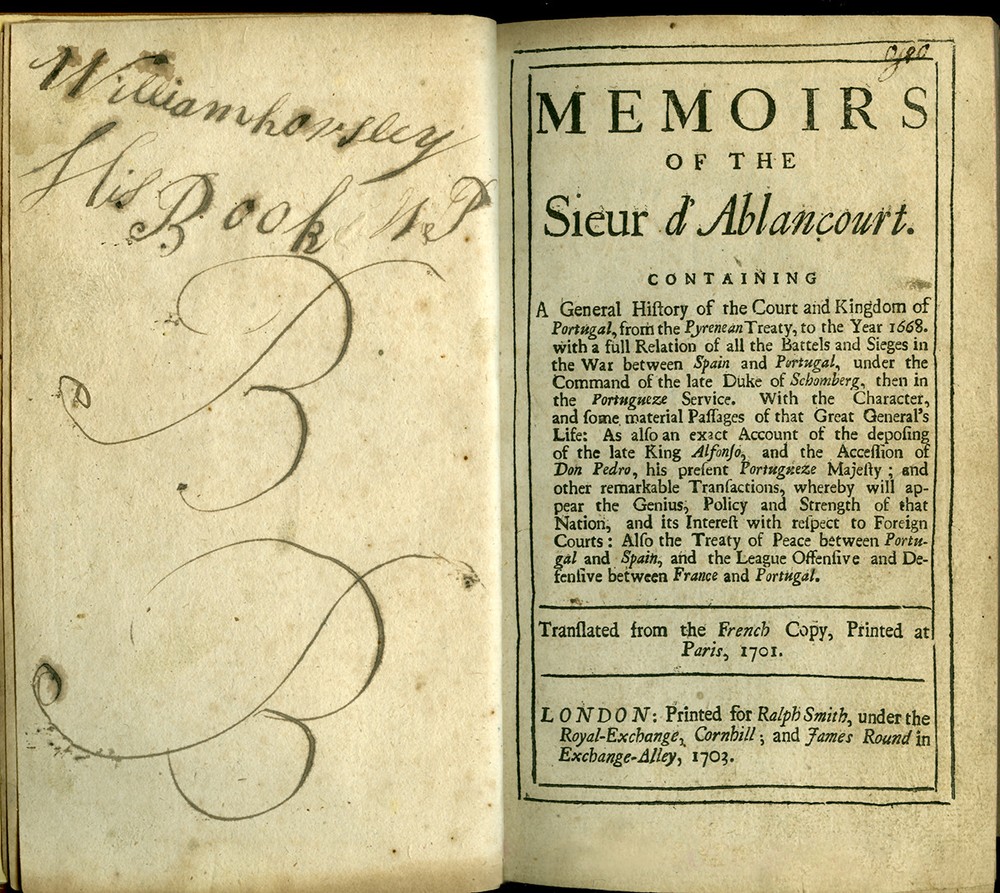 William horsley
His Book
B
B
MEMOIRS
OF THE
Sieur d'Ablancourt.
CONTAINING
A General Hiſtory of the Court and Kingdom of
Portugal, from the Pyrenean Treaty, to the Year 1668.
with a full Relation of all the Battels and Sieges in
the War between Spain and Portugal, under the
Command of the late Duke of Schomberg, then in
the Portugueze Service. With the Character,
and ſome material Paſſages of that Great General's
Life: As alſo an exact Account of the depoſing
of the late King Alfonſo, and the Acceſſion of
Don Pedro, his preſent Portugueze Majeſty; and
other remarkable Tranſactions, whereby will ap-
pear the Genius, Policy and Strength of that
Nation, and its Intereſt with reſpect to Foreign
Courts: Alſo the Treaty of Peace between Portu-
gal and Spain, and the League Offenſive and De-
fenſive between France and Portugal.
Tranſlated from the French Copy, Printed at
Paris, 1701.
LONDON: Printed for Ralph Smith, under the
Royal-Exchange, Cornhill; and James Round in
Exchange-Alley, 1703.